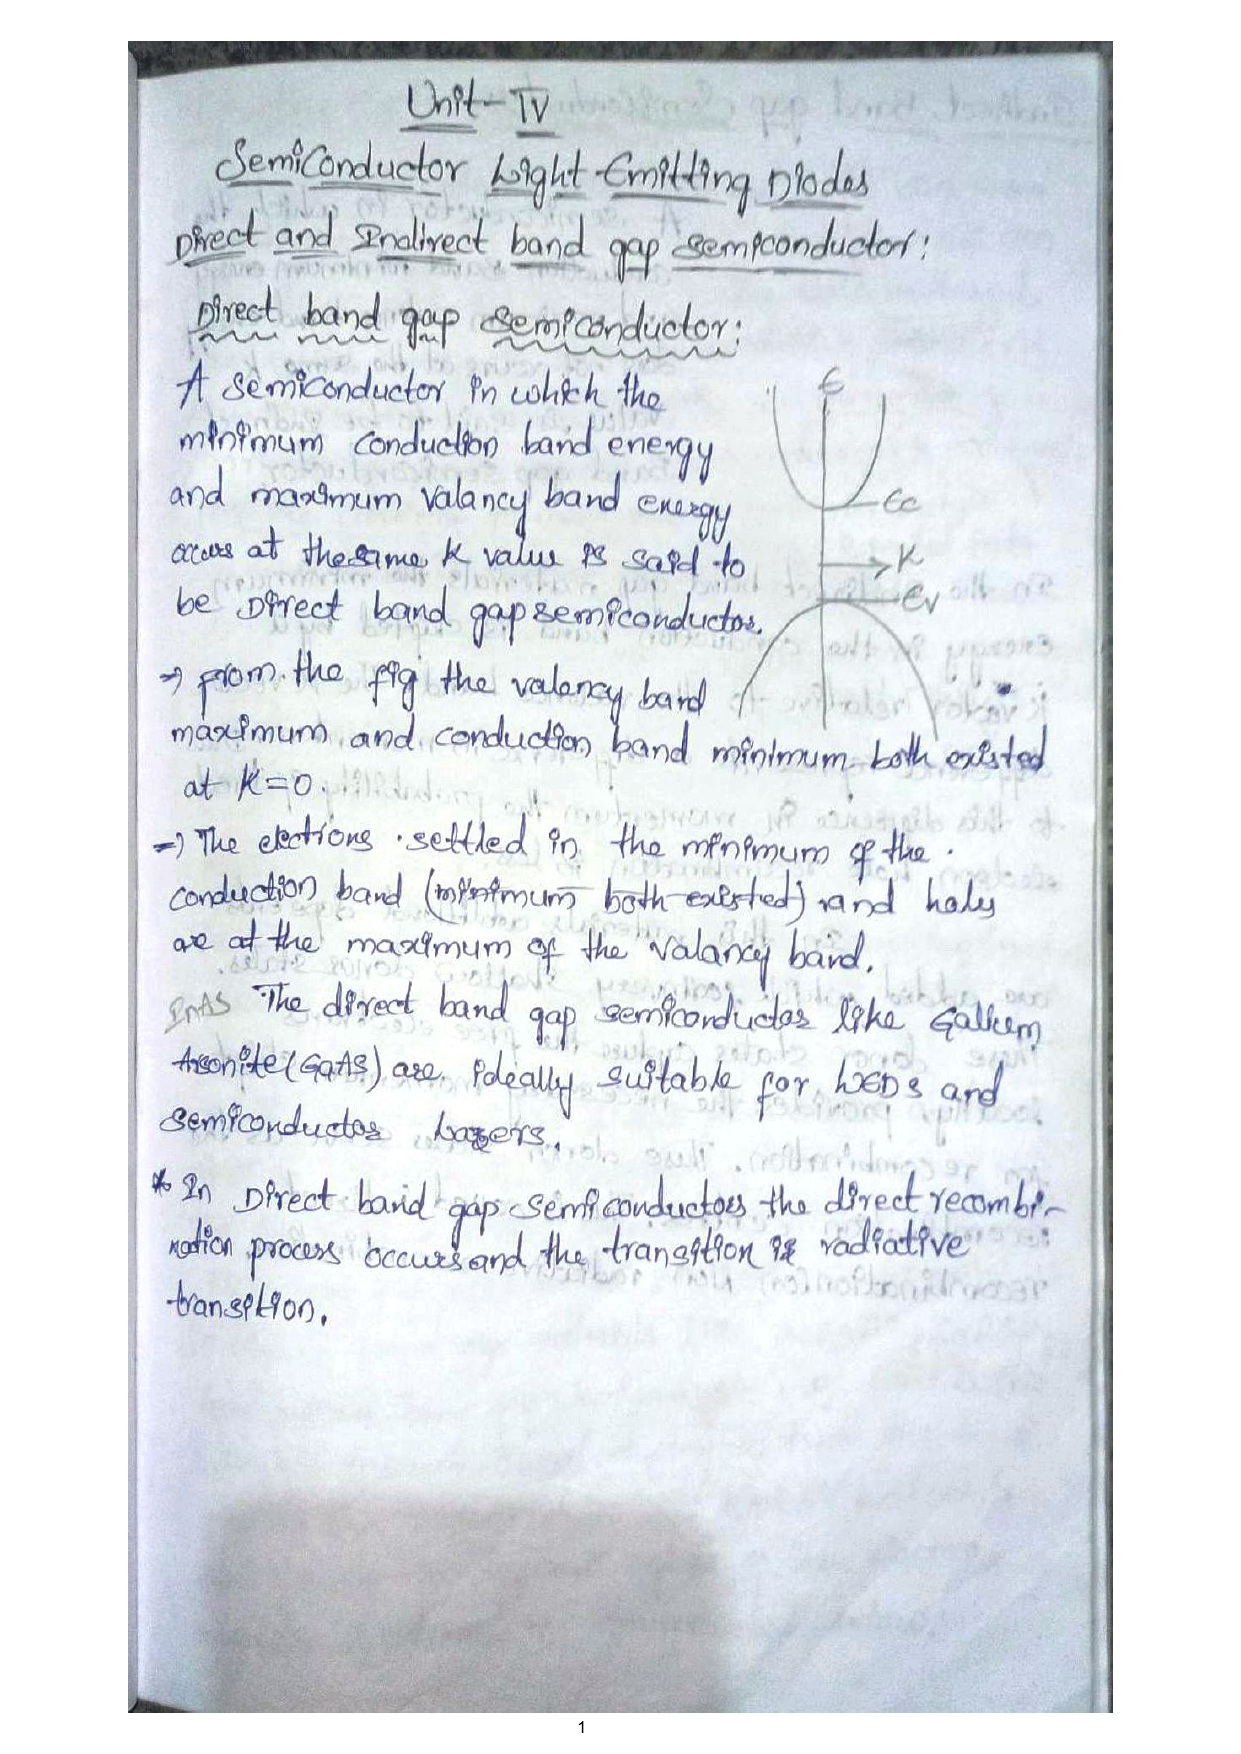 Unit-IV
Semiconductor Light Emitting Diodes
Direct and Indirect band gap semiconductor:
Direct band gap semiconductor:
A semiconductor in which the
minimum conduction band energy
and maximum valancy band energy
occurs at the same k value is said to
be Direct band gap semiconductor.
E
Ec
K
Ev
⇒ from the fig the valancy band
maximum and conduction band minimum both existed
at K=0.
⇒ The elections settled in the minimum of the
conduction band (minimum both existed) and holes
are at the maximum of the valancy band.
InAS The direct band gap semiconductor like Gallium
Arsonite (GaAS) are ideally suitable for LEDs and
semiconductor Lasers.
* In Direct band gap semiconductors the direct recombi-
nation process occurs and the transition is radiative
transition.
1